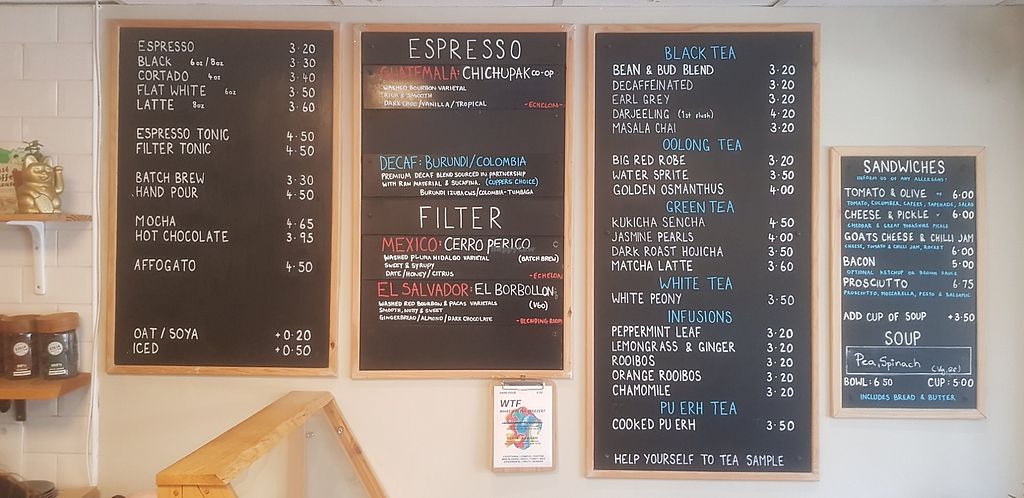 ESPRESSO 3.20
BLACK 6oz/8oz 3.30
CORTADO 4oz 3.40
FLAT WHITE 6oz 3.50
LATTE 8oz 3.60
ESPRESSO TONIC 4.50
FILTER TONIC 4.50
BATCH BREW 3.30
HAND POUR 4.50
MOCHA 4.65
HOT CHOCOLATE 3.95
AFFOGATO 4.50
OAT/SOYA +0.20
ICED +0.50
ESPRESSO
GUATEMALA: CHICHUPAK CO-OP
WASHED BOURBON VARIETAL
RICH & SMOOTH
DARK CHOC/VANILLA/TROPICAL -ECHELON-
DECAF: BURUNDI/COLOMBIA
PREMIUM DECAF BLEND SOURCED IN PARTNERSHIP
WITH RAW MATERIAL & SUCAFINA. (CUPPERS CHOICE)
BURUNDI IZUBA CWS/COLOMBIA-TUMBAGA
FILTER
MEXICO: CERRO PERICO
WASHED PLUMA HIDALGO VARIETAL (BATCH BREW)
SWEET & SYRUPY
DATE/HONEY/CITRUS -ECHELON
EL SALVADOR: EL BORBOLLON
WASHED RED BOURBON & PACAS VARIETALS (V60)
SMOOTH, NUTTY & SWEET
GINGERBREAD/ALMOND/DARK CHOCOLATE -BLENDING ROOM
WTF
BLACK TEA
BEAN & BUD BLEND 3.20
DECAFFEINATED 3.20
EARL GREY 3.20
DARJEELING (1st flush) 4.20
MASALA CHAI 3.20
OOLONG TEA
BIG RED ROBE 3.20
WATER SPRITE 3.50
GOLDEN OSMANTHUS 4.00
GREEN TEA
KUKICHA SENCHA 4.50
JASMINE PEARLS 4.00
DARK ROAST HOJICHA 3.50
MATCHA LATTE 3.60
WHITE TEA
WHITE PEONY 3.50
INFUSIONS
PEPPERMINT LEAF 3.20
LEMONGRASS & GINGER 3.20
ROOIBOS 3.20
ORANGE ROOIBOS 3.20
CHAMOMILE 3.20
PU ERH TEA
COOKED PU ERH 3.50
HELP YOURSELF TO TEA SAMPLE
SANDWICHES
INFORM US OF ANY ALLERGENS!
TOMATO & OLIVE 6.00
TOMATO, CUCUMBER, CAPERS, TAPENADE, SALAD
CHEESE & PICKLE 6.00
CHEDDAR & GREAT YORKSHIRE PICKLE
GOATS CHEESE & CHILLI JAM
CHEESE, TOMATO & CHILLI JAM, ROCKET 6.00
BACON 5.00
OPTIONAL KETCHUP OR BROWN SAUCE
PROSCIUTTO 6.75
PROSCIUTTO, MOZZARELLA, PESTO & BALSAMIC
ADD CUP OF SOUP +3.50
SOUP
Pea, Spinach
BOWL: 6.50 CUP: 5.00
INCLUDES BREAD & BUTTER